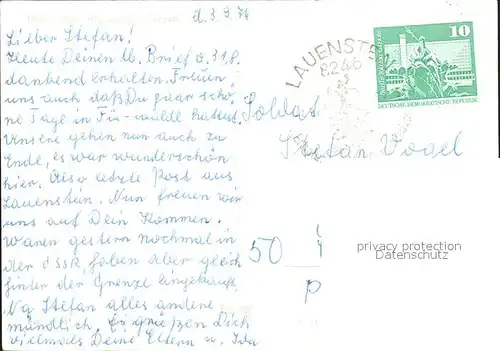 d. 3.9.74
Lieber Stefan!
Heute Deinen lb. Brief v. 31.8.
dankend erhalten. Freuen
uns auch daß Du paar schö-
ne Tage in Fü-walde hattest.
Unsere gehen nun auch zu
Ende, es war wunderschön
hier. Also letzte Post aus
Lauenstein. Nun freuen wir
uns auf Dein Kommen.
Waren gestern nochmal in
der ČSSR, haben aber gleich
hinter der Grenze eingekauft.
Na Stefan alles andere
mündlich. Es grüßen Dich
vielmals Deine Eltern u.
LAUENSTE
8246
10
DEUTSCHE DEMOKRATISCHE REPUBLIK
Soldat
Stefan Vogel
50
privacy protection
Datenschutz
p